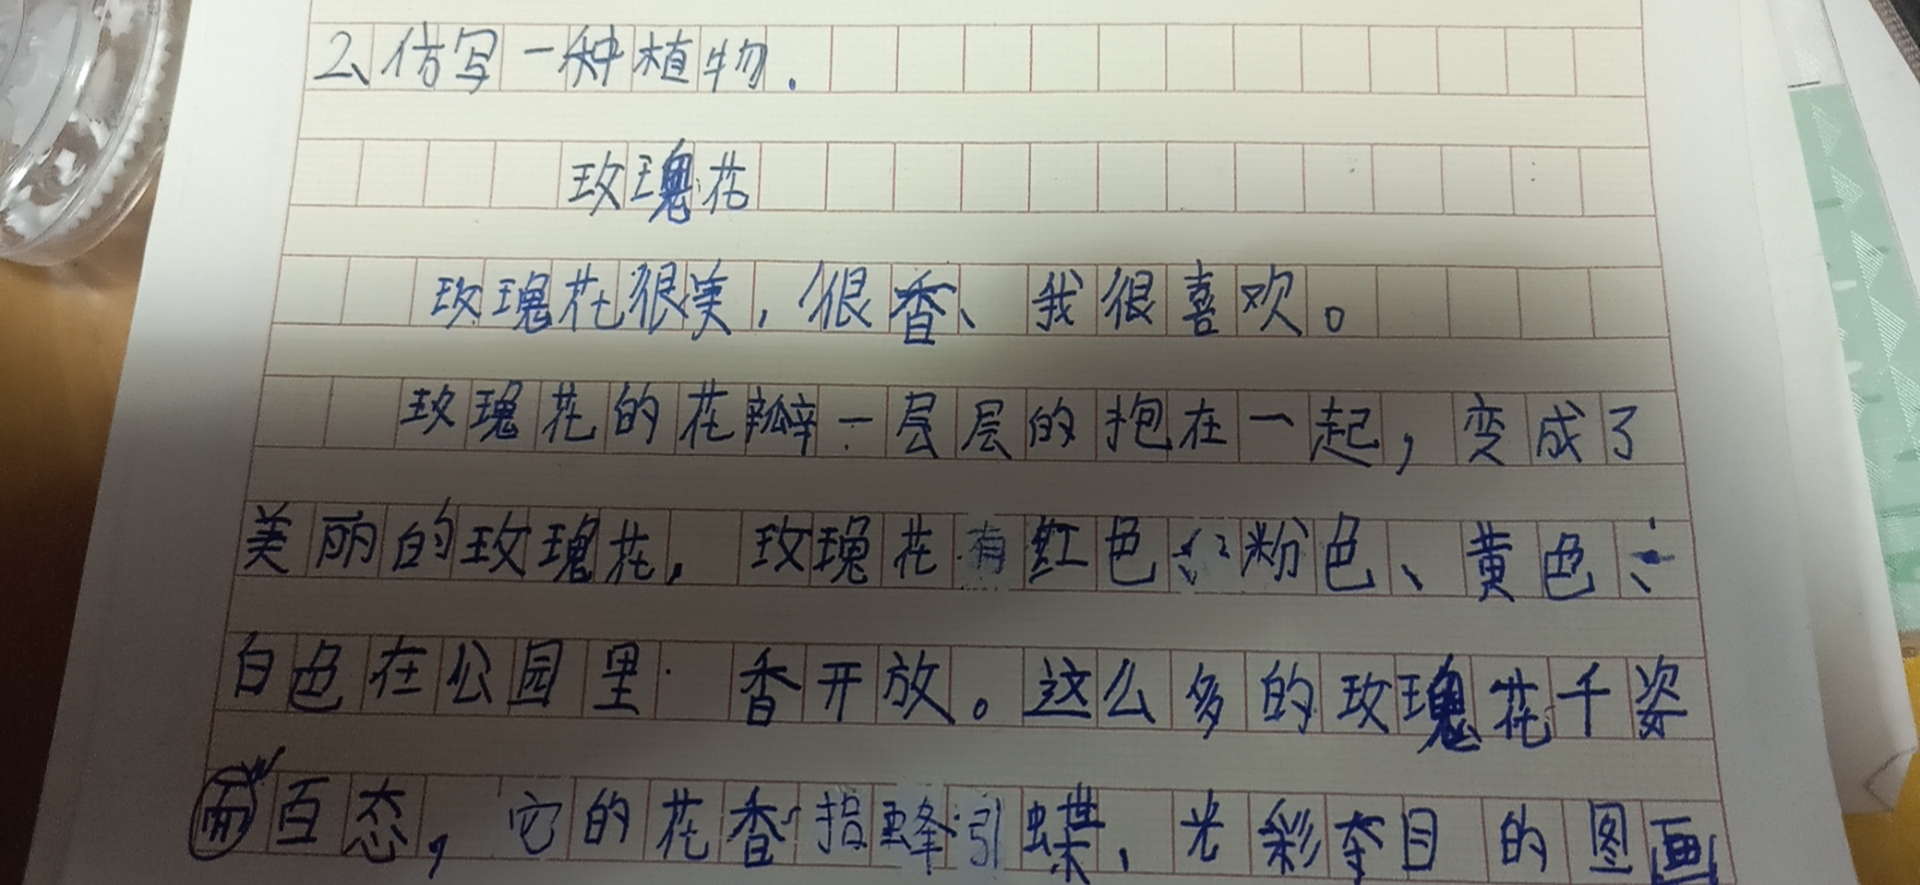 2、仿写一种植物.
玫瑰花
玫瑰花很美，很香、我很喜欢。
玫瑰花的花瓣一层层的抱在一起，变成了
美丽的玫瑰花，玫瑰花有红色、粉色、黄色、
白色在公园里 香开放。这么多的玫瑰花千姿
百态，它的花香招蜂引蝶、光彩夺目的图画